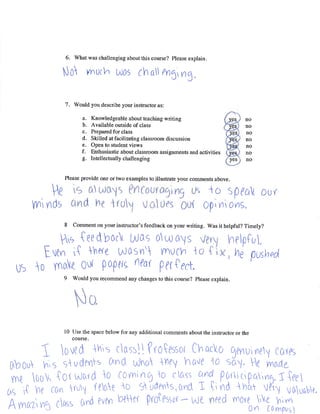 6. What was challenging about this course? Please explain.
Not much was challenging.
7. Would you describe your instructor as:
a. Knowledgeable about teaching writing yes no
b. Available outside of class yes no
c. Prepared for class yes no
d. Skilled at facilitating classroom discussion yes no
e. Open to student views yes no
f. Enthusiastic about classroom assignments and activities yes no
g. Intellectually challenging yes no
Please provide one or two examples to illustrate your comments above.
He is always encouraging us to speak our
minds and he truly values our opinions.
8 Comment on your instructor's feedback on your writing. Was it helpful? Timely?
His feedback was always very helpful.
Even if there wasn't much to fix, he pushed
us to make our papers near perfect.
9 Would you recommend any changes to this course? Please explain.
No.
10 Use the space below for any additional comments about the instructor or the
course.
I loved this class!! Professor Chacko genuinely cares
about his students and what they have to say. He made
me look forward to coming to class and participating. I feel
as if he can truly relate to students, and I find that very valuable.
Amazing class and even better professor - we need more like him
on campus!